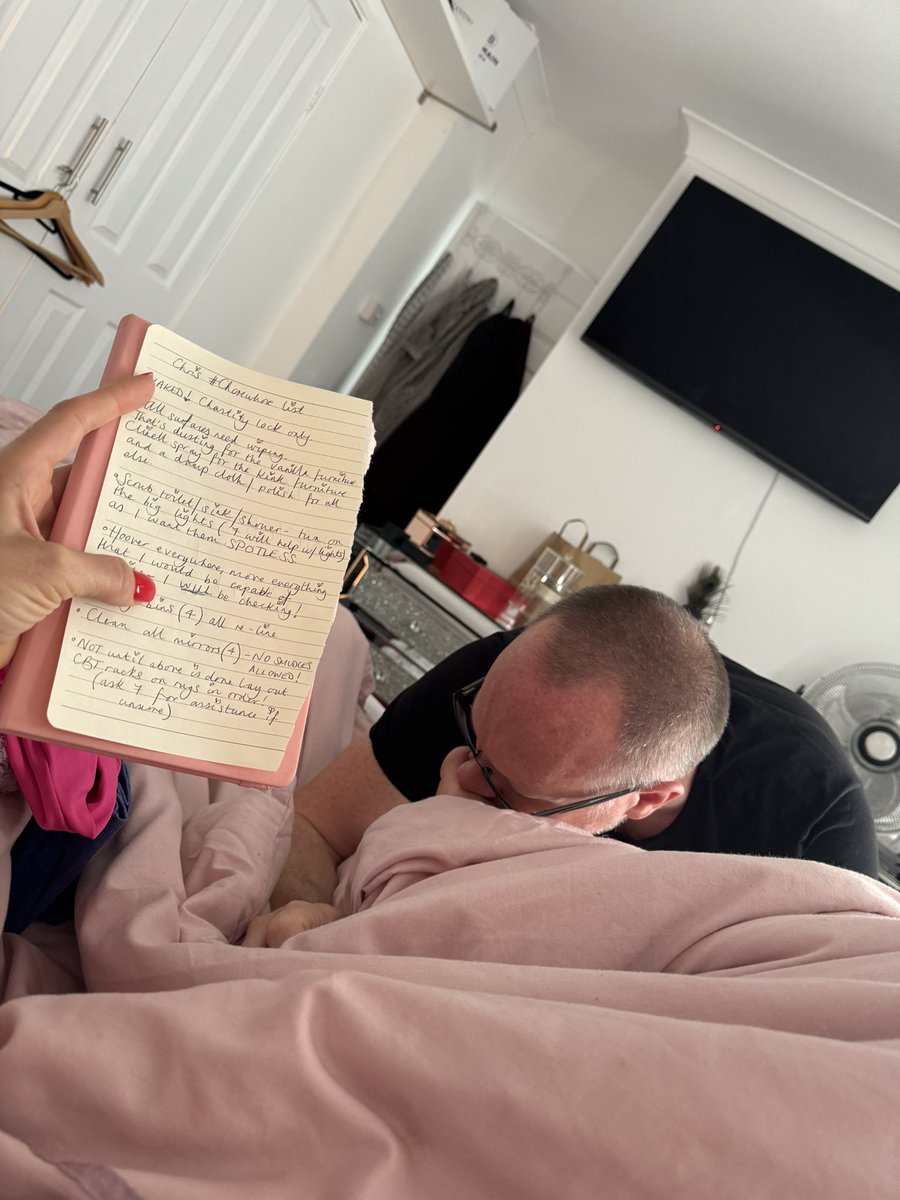 Chris #Chorewhore list
NAKED! Chastity lock only
All surfaces need wiping.
That's dusting for the vanilla furniture
Clinell spray for the kink furniture
and a damp cloth/polish for all
else.
• Scrub toilet/sink/shower - turn on
the big lights (7 will help w/ lights)
as I want them SPOTLESS.
• Hoover everywhere, move everything
that I would be capable of!
I will be checking!
bins (4) all re-line
• Clean all mirrors (4) - NO SMUDGES
ALLOWED!
• NOT until above is done lay out
CBT racks on rugs in order!
(ask 7 for assistance if
unsure)